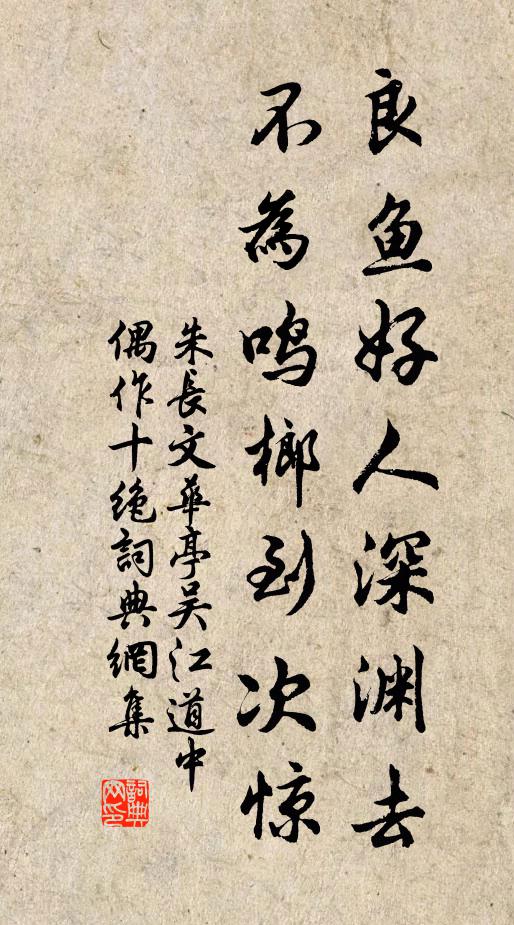 良鱼好人深渊去
不為鸣榔到次惊
朱長文華亭吴江道中
偶作十绝詞典網集
詞典网印